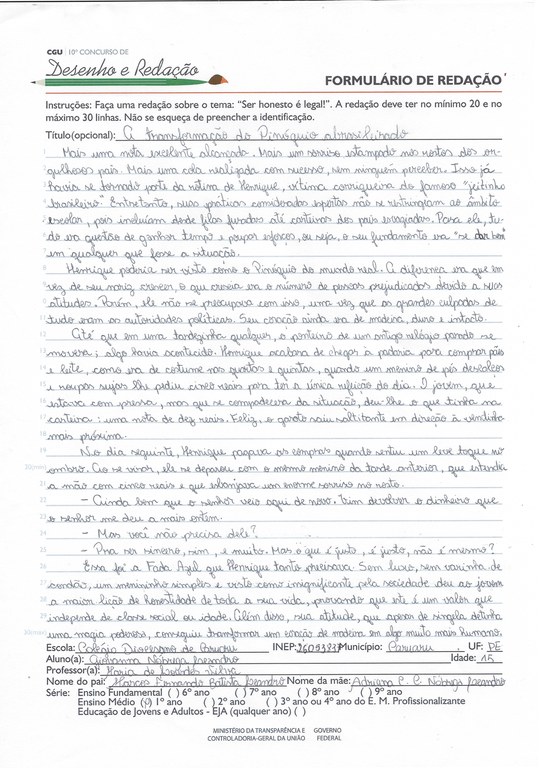 CGU | 10º CONCURSO DE
Desenho e Redação
FORMULÁRIO DE REDAÇÃO
Instruções: Faça uma redação sobre o tema: "Ser honesto é legal!". A redação deve ter no mínimo 20 e no
máximo 30 linhas. Não se esqueça de preencher a identificação.
Título(opcional): A transformação do Pinóquio abrasileirado
Mais uma nota excelente alcançada. Mais um sorriso estampado nos rostos dos or-
gulhosos pais. Mais uma cola realizada com sucesso, sem ninguém perceber. Isso já
havia se tornado parte da rotina de Henrique, vítima corriqueira do famoso "jeitinho
brasileiro". Entretanto, suas práticas consideradas espertas não se restringiam ao âmbito
escolar, pois incluíam desde filas furadas até carteiras dos pais esvaziadas. Para ele, tu-
do era questão de ganhar tempo e poupar esforços, ou seja, o seu fundamento era "se dar bem"
em qualquer que fosse a situação.
Henrique poderia ser visto como o Pinóquio do mundo real. A diferença era que em
vez de seu nariz crescer, o que crescia era o número de pessoas prejudicadas devido a suas
atitudes. Porém, ele não se preocupava com isso, uma vez que os grandes culpados de
tudo eram as autoridades políticas. Seu coração ainda era de madeira, duro e intacto.
Até que em uma tardezinha qualquer, o ponteiro de um antigo relógio parado se
movera; algo havia acontecido. Henrique acabara de chegar à padaria para comprar pães
e leite, como era de costume nas quartas e quintas, quando um menino de pés descalços
e roupas sujas lhe pediu cinco reais para ter a única refeição do dia. O jovem, que
estava com pressa, mas que se compadecera da situação, deu-lhe o que tinha na
carteira: uma nota de dez reais. Feliz, o garoto saiu saltitante em direção à vendinha
mais próxima.
No dia seguinte, Henrique pagava as compras quando sentiu um leve toque no
ombro. Ao se virar, ele se deparou com o mesmo menino da tarde anterior, que estendia
a mão com cinco reais e que esbanjava um enorme sorriso no rosto.
– Ainda bem que o senhor veio aqui de novo. Vim devolver o dinheiro que
o senhor me deu a mais ontem.
– Mas você não precisa dele?
– Pra ser sincero, sim, e muito. Mas o que é justo, é justo, não é mesmo?
Essa foi a Fada Azul que Henrique tanto precisava. Sem luxo, sem varinha de
condão, um menininho simples e visto como insignificante pela sociedade deu ao jovem
a maior lição de honestidade de toda a sua vida, provando que este é um valor que
independe de classe social ou idade. Além disso, sua atitude, que apesar de singela detinha
uma magia poderosa, conseguiu transformar um coração de madeira em algo muito mais humano.
Escola: Colégio Diocesano de Caruaru INEP: Município: Caruaru. UF: PE
Aluno(a): Giovanna Nóbrega Leandro Idade: 15
Professor(a): Maria de Lourdes Silva
Nome do pai: Marcos Fernando Batista Leandro Nome da mãe: Adriana C. C. Nóbrega Leandro
Série: Ensino Fundamental ( ) 6º ano ( ) 7º ano ( ) 8º ano ( ) 9º ano
Ensino Médio (x) 1º ano ( ) 2º ano ( ) 3º ano ou 4º ano do E. M. Profissionalizante
Educação de Jovens e Adultos - EJA (qualquer ano) ( )
MINISTÉRIO DA TRANSPARÊNCIA E GOVERNO
CONTROLADORIA-GERAL DA UNIÃO FEDERAL